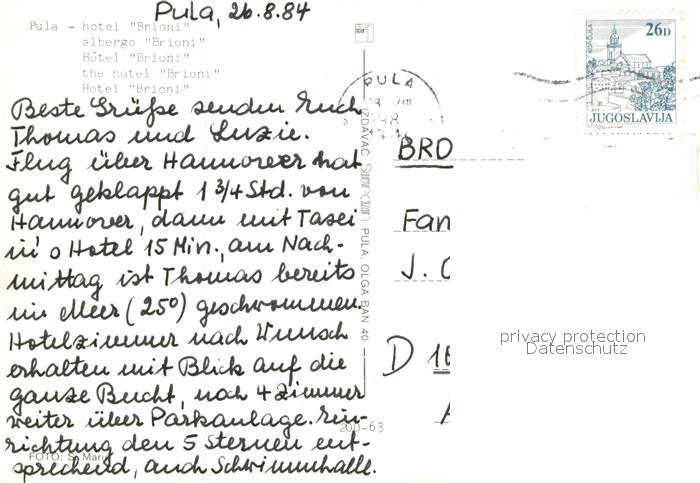 Pula, 26.8.84
Pula - hotel "Brioni"
albergo "Brioni"
Hôtel "Brioni"
the hotel "Brioni"
Hotel "Brioni"
Beste Grüße senden Euch
Thomas und Luzie.
Flug über Hannover hat
gut geklappt 1 3/4 Std. von
Hannover, dann mit Taxi
in's Hotel 15 Min., am Nach-
mittag ist Thomas bereits
im Meer (25°) geschwommen.
Hotelzimmer nach Wunsch
erhalten mit Blick auf die
ganze Bucht, noch 4 Zimmer
weiter über Parkanlage. Ein-
richtung den 5 Sternen ent-
sprechend, auch Schwimmhalle.
FOTO: S. Marić
200-63
IZDAVAČ PULA, OLGA BAN 40
PULA
26D
JUGOSLAVIJA
BRD
Fam
J.
D 1
privacy protection
Datenschutz